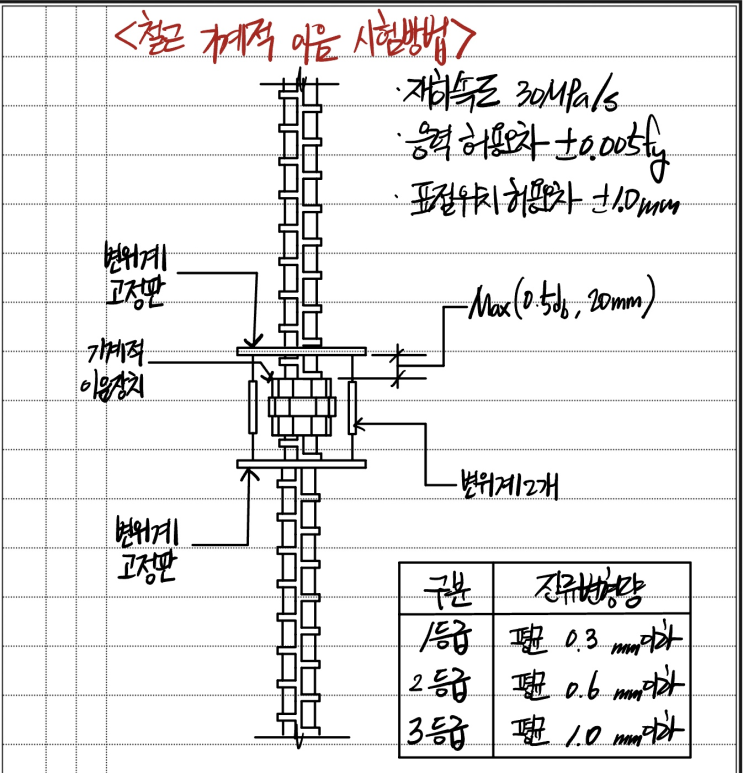 <철근 기계적 이음 시험방법>
· 재하속도 30MPa/s
· 응력 허용오차 ±0.005fy
· 표점위치 허용오차 ±1.0mm
변위계
고정판
Max(0.5db, 20mm)
기계적
이음장치
변위계 2개
변위계
고정판
구분 잔류변형량
1등급 평균 0.3 mm이하
2등급 평균 0.6 mm이하
3등급 평균 1.0 mm이하